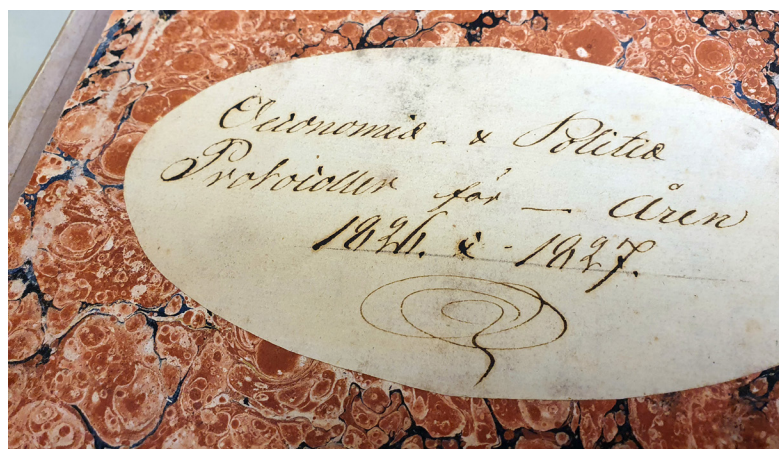 Œconomiæ - & Politiæ
Protocoller för — Åren
1826. & - 1827.